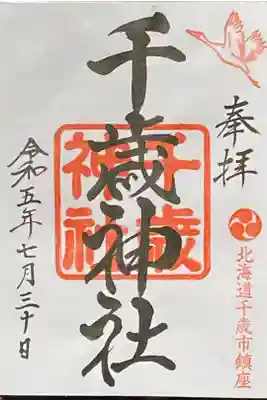 奉拝
北海道千歳市鎮座
千歳神社
千歳
神社
令和五年七月三十日